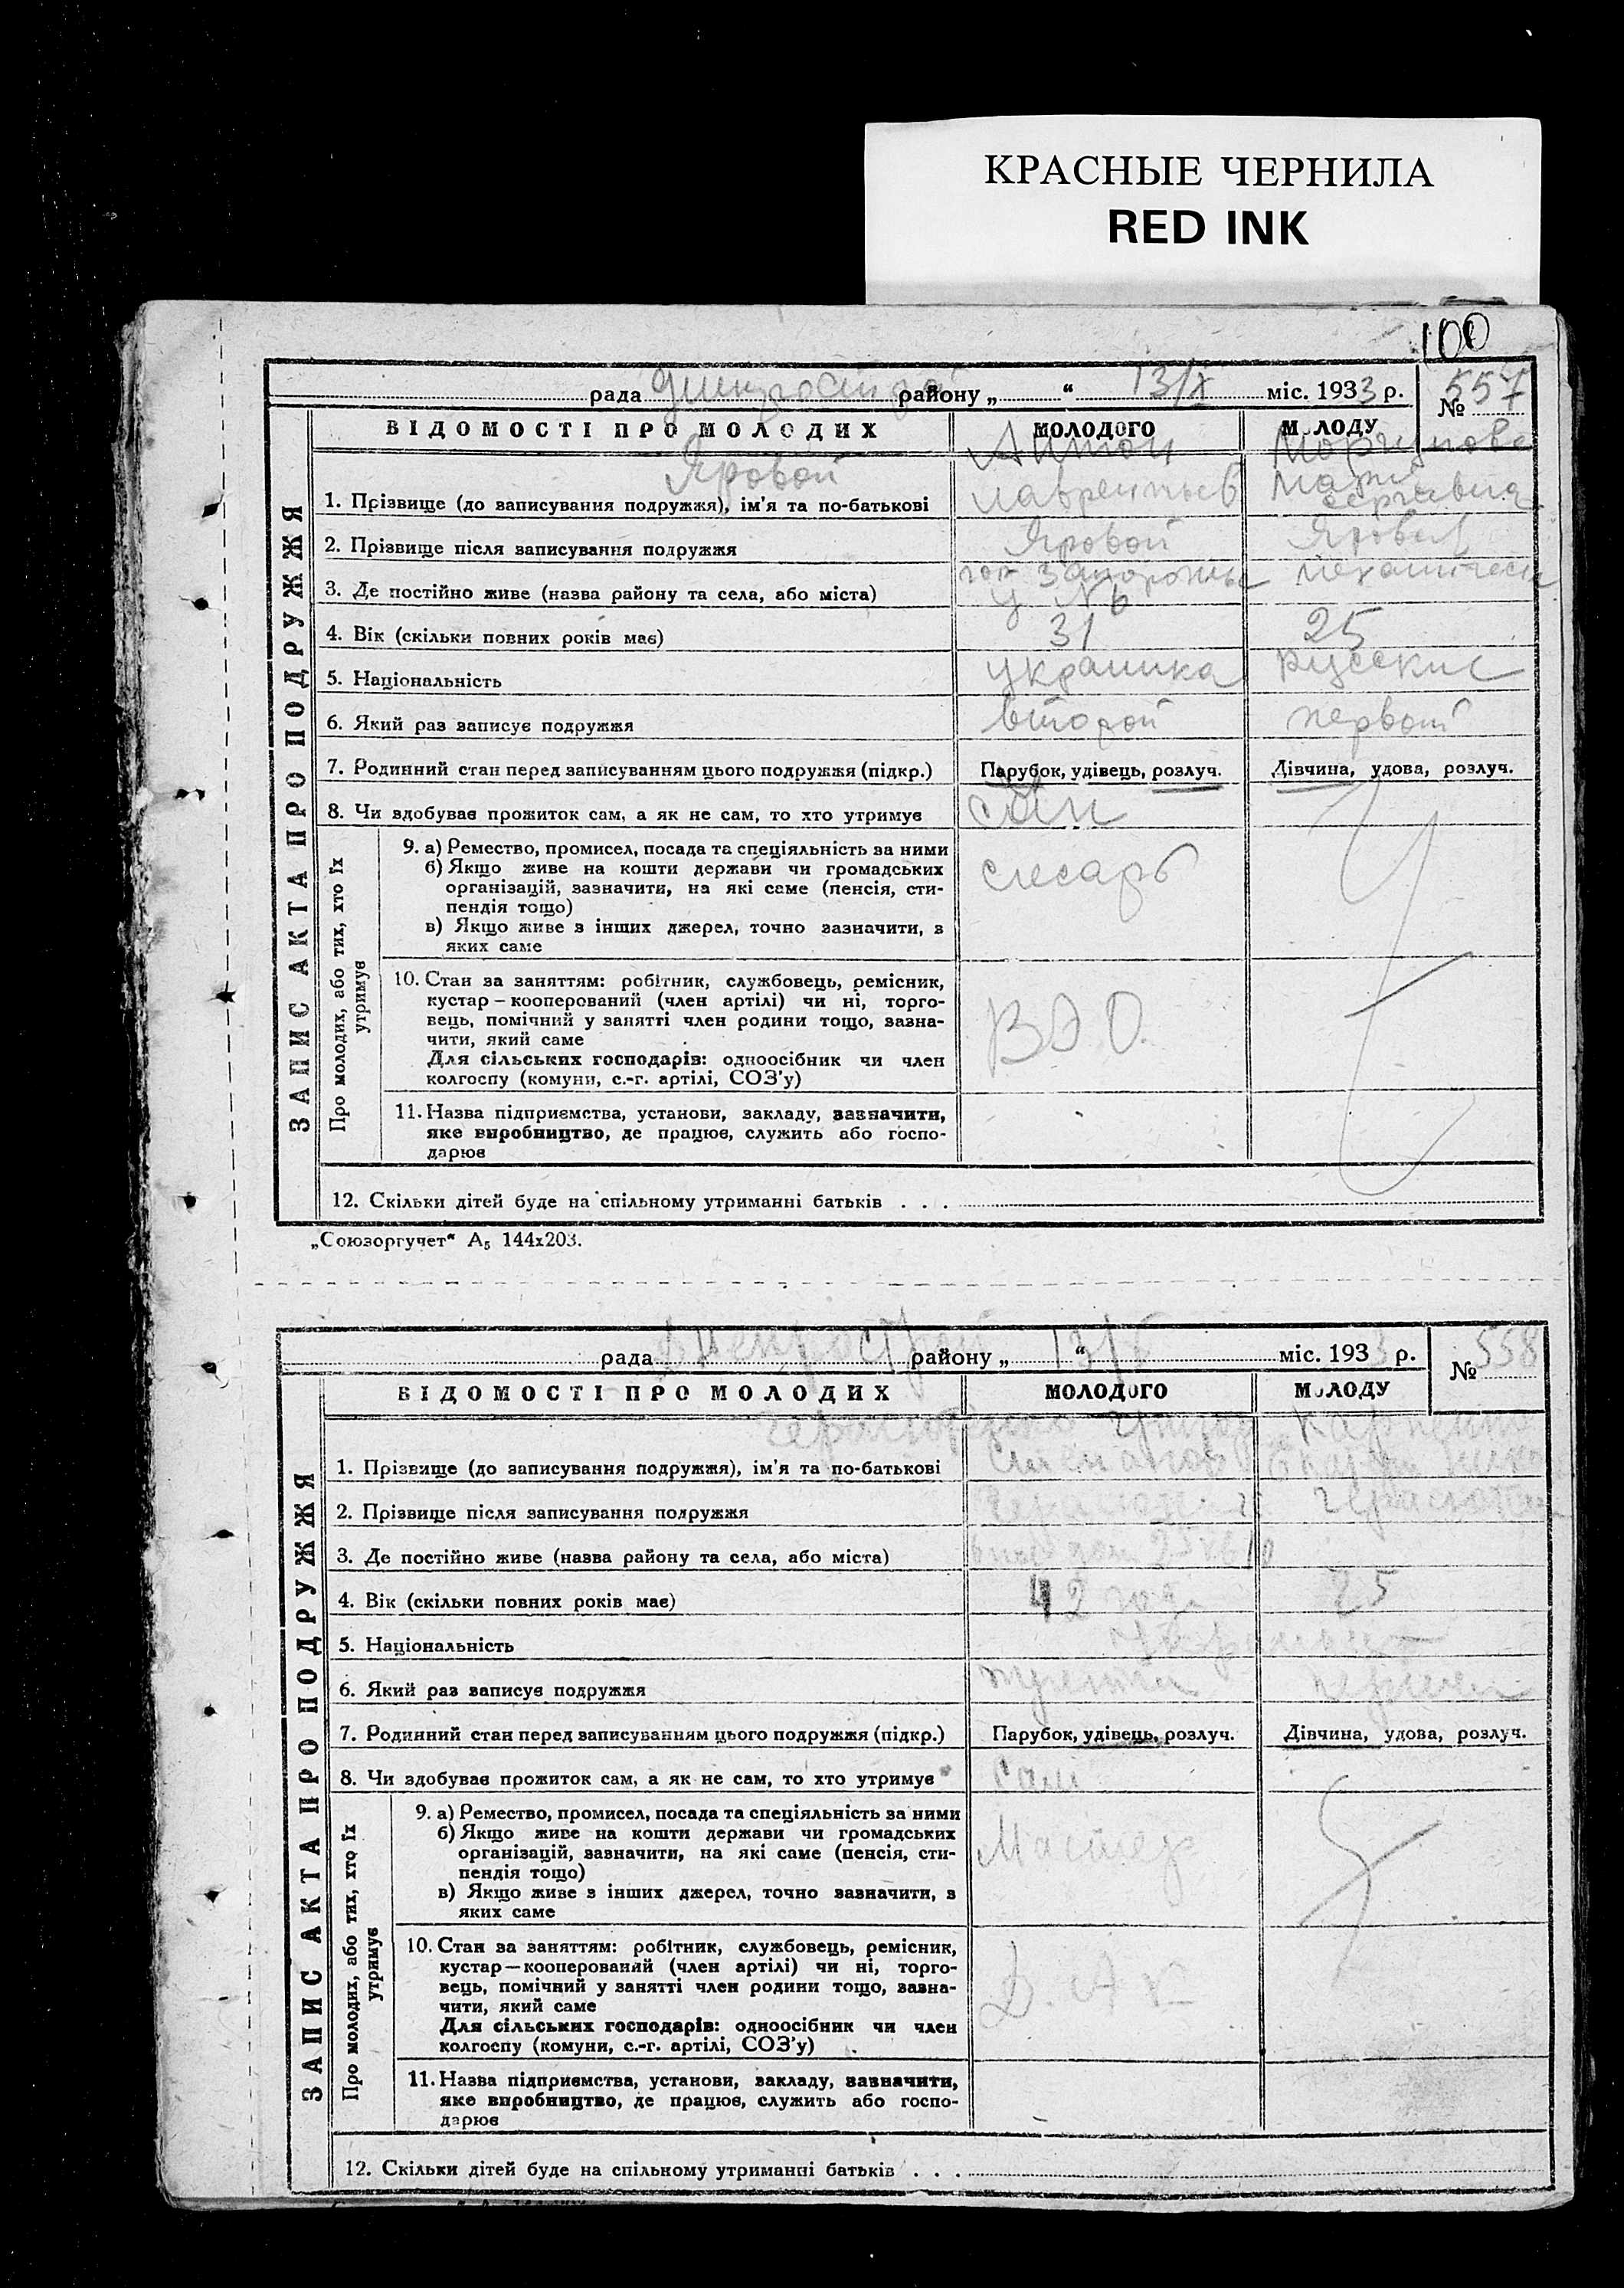 КРАСНЫЕ ЧЕРНИЛА
RED INK
100
рада району „ “ 13/X міс. 1933 р. № 557
ВІДОМОСТІ ПРО МОЛОДИХ МОЛОДОГО МОЛОДУ
ЗАПИС АКТА ПРО ПОДРУЖЖЯ
Яровой Антон
1. Прізвище (до записування подружжя), ім’я та по-батькові
2. Прізвище після записування подружжя Яровой
3. Де постійно живе (назва району та села, або міста) гор Запорожье
№ 6
4. Вік (скільки повних років має) 31 25
5. Національність украинка русские
6. Який раз записує подружжя второй первой
7. Родинний стан перед записуванням цього подружжя (підкр.) Парубок, удівець, розлуч. Дівчина, удова, розлуч.
8. Чи здобуває прожиток сам, а як не сам, то хто утримує сам
Про молодих, або тих, хто їх утримує
9. а) Ремество, промисел, посада та спеціяльність за ними слесарь
б) Якщо живе на кошти держави чи громадських
організацій, зазначити, на які саме (пенсія, сти-
пендія тощо)
в) Якщо живе з інших джерел, точно зазначити, з
яких саме
10. Стан за заняттям: робітник, службовець, ремісник,
кустар – кооперований (член артілі) чи ні, торго-
вець, помічний у занятті член родини тощо, зазна-
чити, який саме В Э О.
Для сільських господарів: одноосібник чи член
колгоспу (комуни, с.-г. артілі, СОЗ’у)
11. Назва підприємства, установи, закладу, зазначити,
яке виробництво, де працює, служить або госпо-
дарює
12. Скільки дітей буде на спільному утриманні батьків . . .
„Союзоргучет“ А5 144х203.
рада Днепрострой району „ “ міс. 1933 р. № 558
ВІДОМОСТІ ПРО МОЛОДИХ МОЛОДОГО МОЛОДУ
ЗАПИС АКТА ПРО ПОДРУЖЖЯ
1. Прізвище (до записування подружжя), ім’я та по-батькові
2. Прізвище після записування подружжя
3. Де постійно живе (назва району та села, або міста)
4. Вік (скільки повних років має) 42 года 25
5. Національність
6. Який раз записує подружжя
7. Родинний стан перед записуванням цього подружжя (підкр.) Парубок, удівець, розлуч. Дівчина, удова, розлуч.
8. Чи здобуває прожиток сам, а як не сам, то хто утримує сам
Про молодих, або тих, хто їх утримує
9. а) Ремество, промисел, посада та спеціяльність за ними
б) Якщо живе на кошти держави чи громадських Мастер
організацій, зазначити, на які саме (пенсія, сти-
пендія тощо)
в) Якщо живе з інших джерел, точно зазначити, з
яких саме
10. Стан за заняттям: робітник, службовець, ремісник,
кустар — кооперований (член артілі) чи ні, торго-
вець, помічний у занятті член родини тощо, зазна-
чити, який саме
Для сільських господарів: одноосібник чи член
колгоспу (комуни, с.-г. артілі, СОЗ’у)
11. Назва підприємства, установи, закладу, зазначити,
яке виробництво, де працює, служить або госпо-
дарює
12. Скільки дітей буде на спільному утриманні батьків . . .